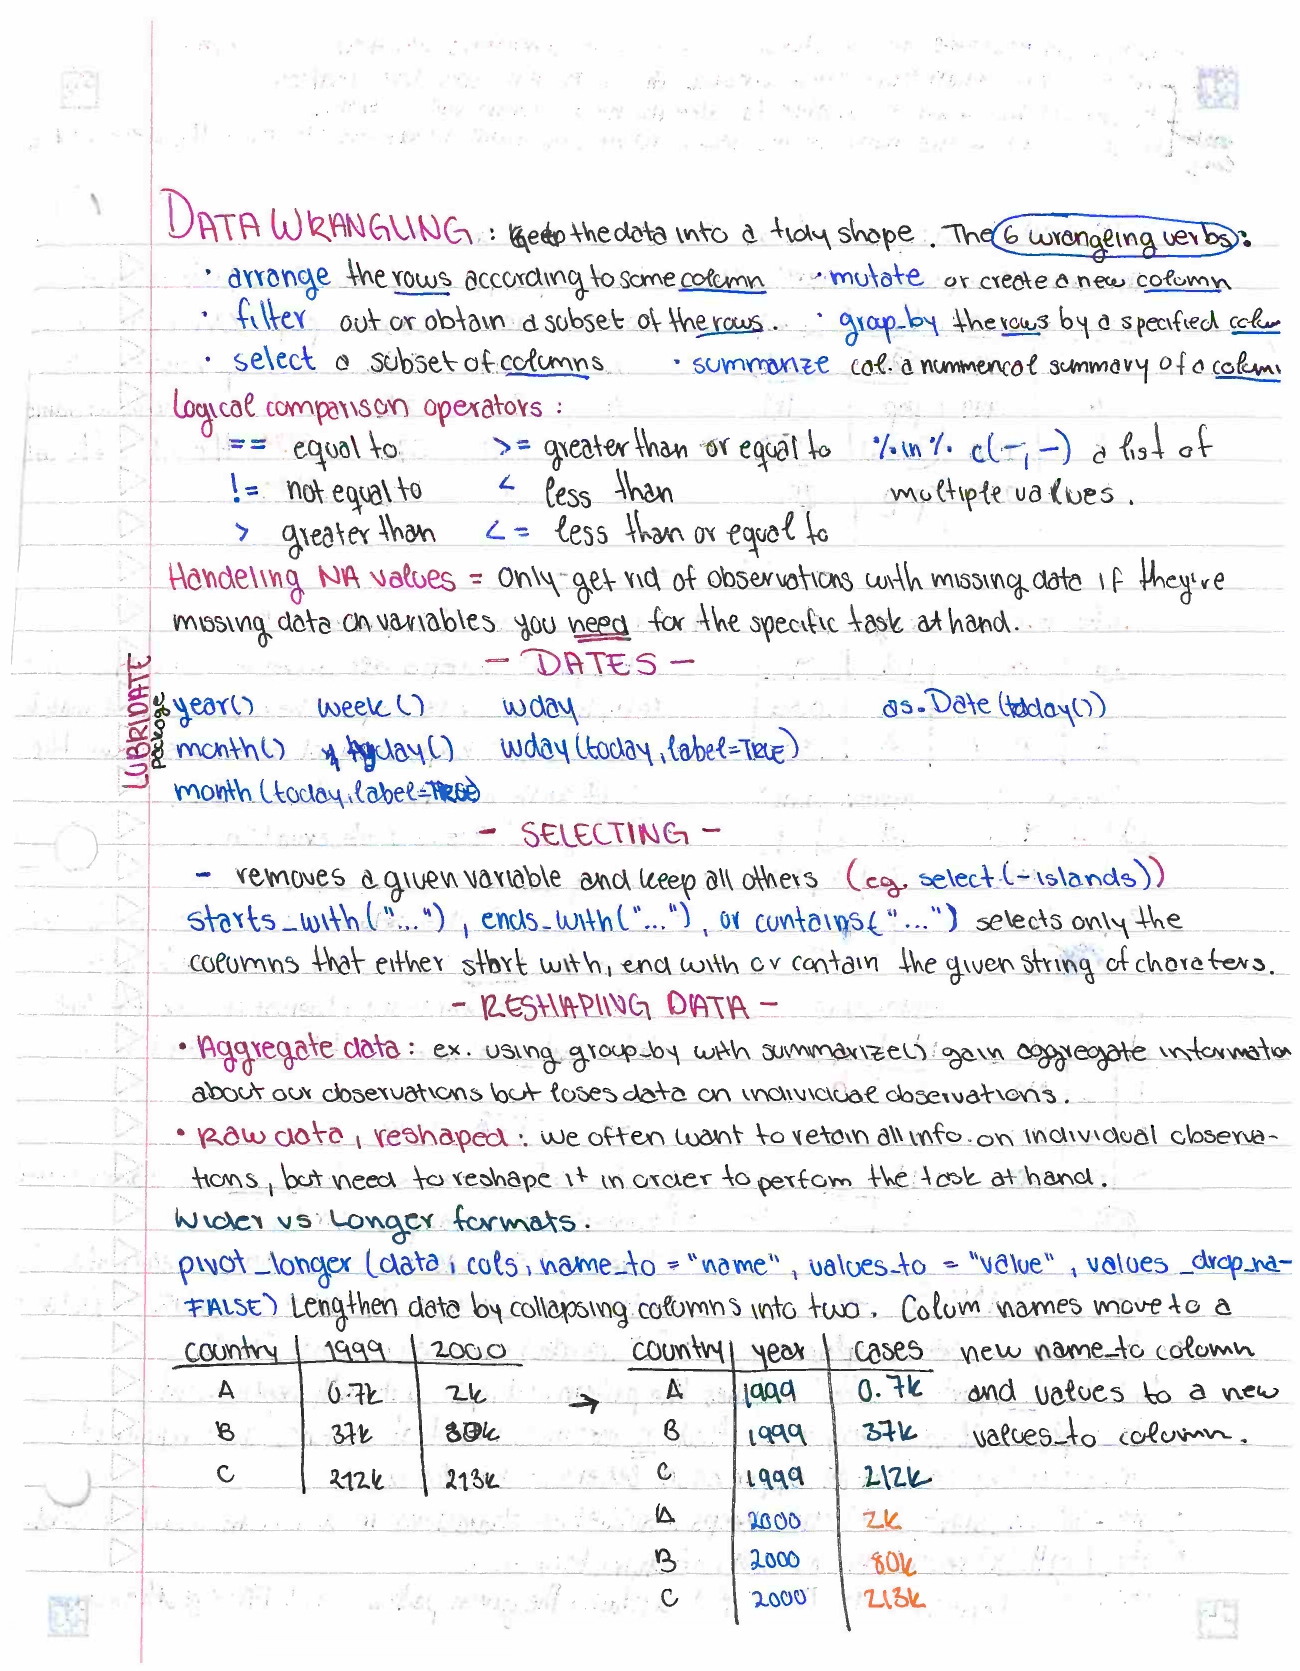 DATA WRANGLING : the data into a tidy shape. The 6 wrangeling verbs:
• arrange the rows according to some column • mutate or create a new column
• filter out or obtain a subset of the rows. • group_by the rows by a specified colum
• select a subset of columns • summarize cal. a nummerical summary of a column
Logical comparison operators :
== equal to >= greater than or equal to %in% c(–,–) a list of
!= not equal to < less than multiple values.
> greater than <= less than or equal to
Handeling NA values = Only get rid of observations with missing data if they're
missing data on variables you need for the specific task at hand.
– DATES –
LUBRIDATE
package
year() week() wday as.Date(today())
month() yday() wday(today, label=TRUE)
month(today, label=TRUE)
– SELECTING –
– removes a given variable and keep all others (eg. select(-islands))
starts_with("..."), ends_with("..."), or contains("...") selects only the
columns that either start with, end with or contain the given string of characters.
– RESHAPING DATA –
• Aggregate data : ex. using group_by with summarize() gain aggregate information
about our observations but loses data on individual observations.
• Raw data, reshaped : we often want to retain all info. on individual observa-
tions, but need to reshape it in order to perfom the task at hand.
Wider vs Longer formats.
pivot_longer (data, cols, name_to = "name", values_to = "value", values_drop_na=
FALSE) Lengthen data by collapsing columns into two. Colum names move to a
country 1999 2000 country year cases new name_to column
A 0.7k 2k → A 1999 0.7k and values to a new
B 37k 80k B 1999 37k values_to column.
C 212k 213k C 1999 212k
A 2000 2k
B 2000 80k
C 2000 213k